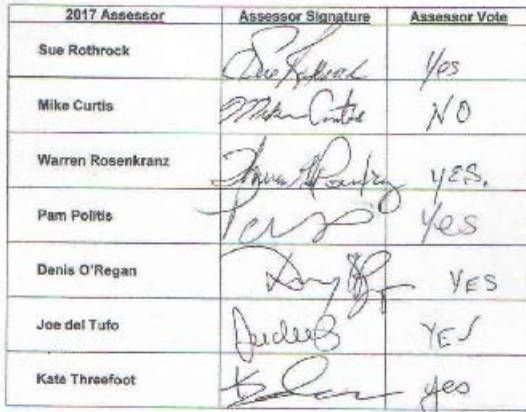 2017 Assessor Assessor Signature Assessor Vote
Sue Rothrock Sue Rothrock Yes
Mike Curtis Mike Curtis NO
Warren Rosenkranz YES.
Pam Politis Yes
Denis O'Regan YES
Joe del Tufo YES
Kate Threefoot yes